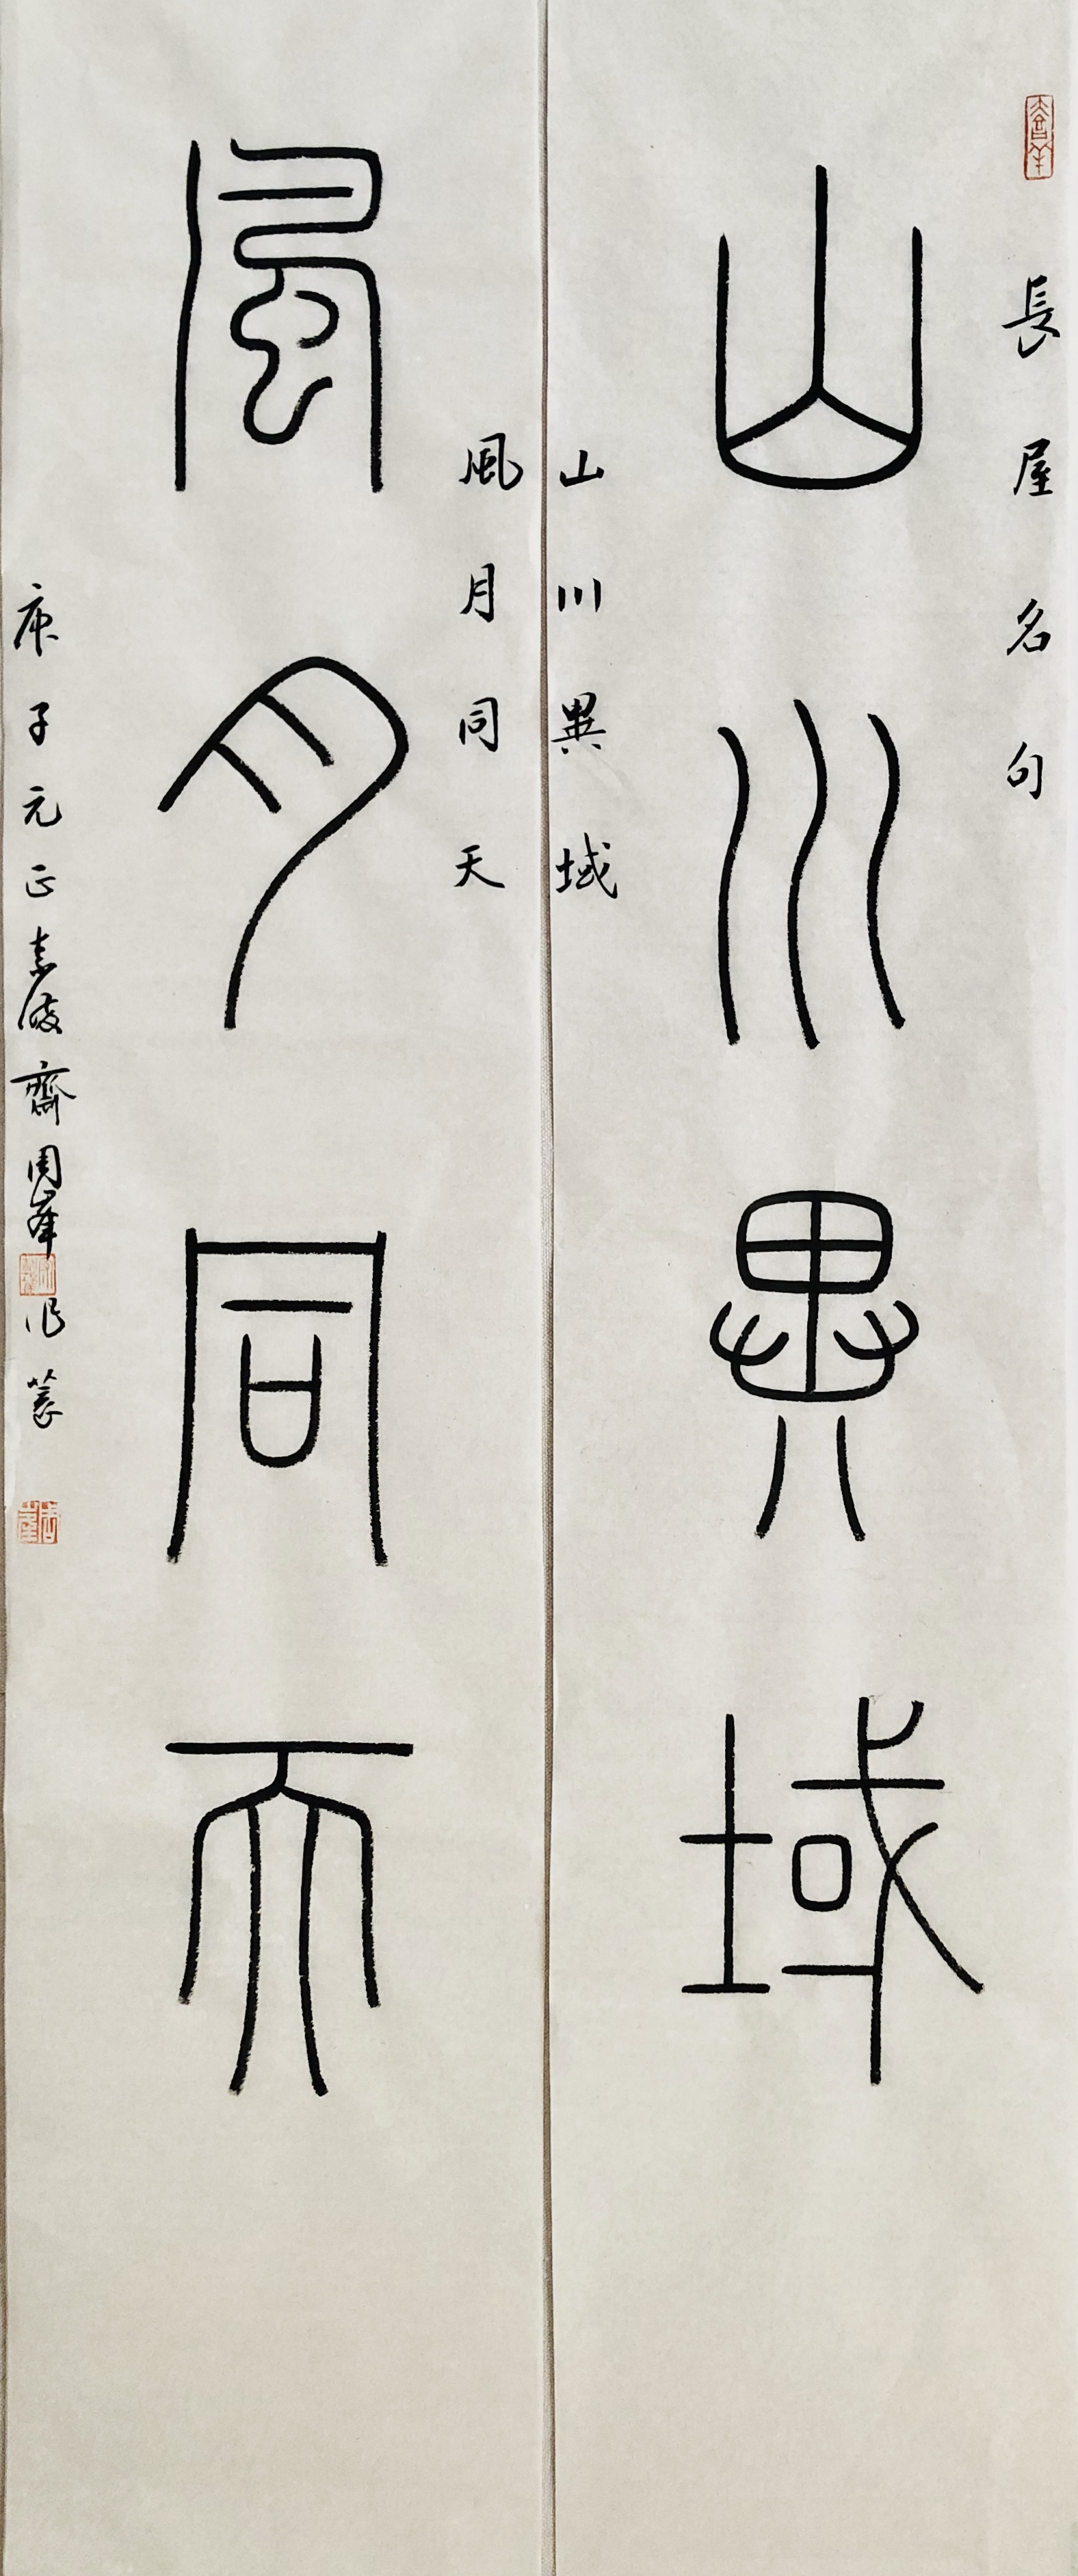 長屋名句
山川異域
山川異域
風月同天
風月同天
庚子元正
齋周峯作篆